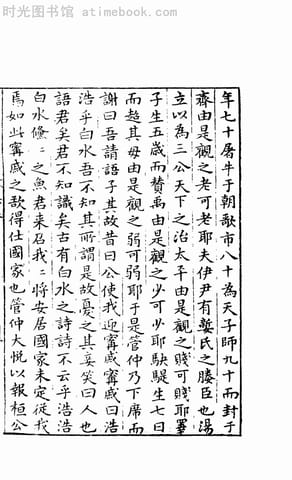 时光图书馆 atimebook.com
年七十屠牛于朝歌市八十為天子師九十而封于
齊由是觀之老可老耶夫伊尹有㜪氏之媵臣也湯
立以為三公天下之治太平由是觀之賤可賤耶睪
子生五歲而贊禹由是觀之少可少耶駃騠生七日
而超其母由是觀之弱可弱耶于是管仲乃下席而
謝曰吾請語子其故昔日公使我迎寗戚寗戚曰浩
浩乎白水吾不知其所謂是故憂之其妾笑曰人也
語君矣君不知識矣古有白水之詩詩不云乎浩浩
白水儵〻之魚君來召我〻將安居國家未定從我
焉如此寗戚之欲得仕國家也管仲大悅以報桓公